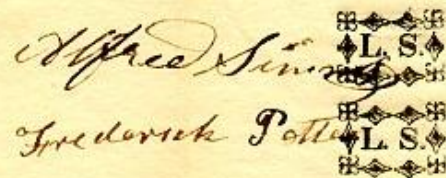 Alfred Simms L. S.
Frederick Potter L. S.